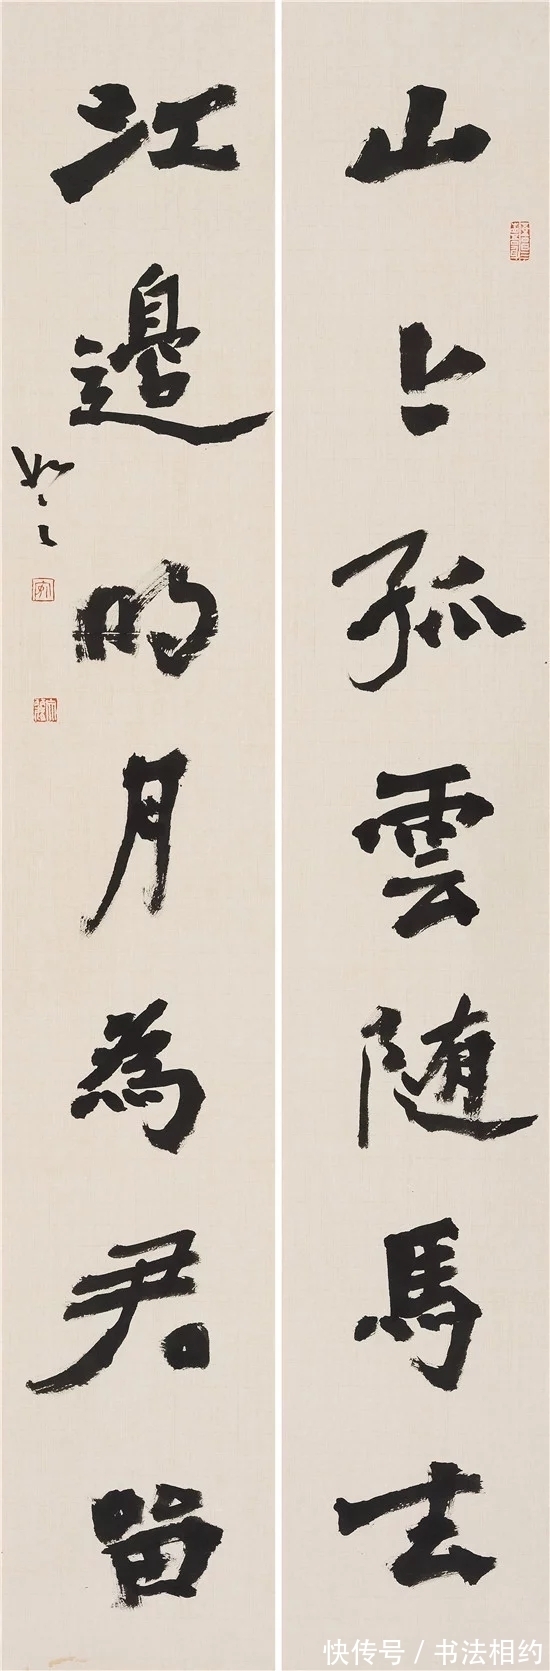 山上孤雲随馬去
江邊明月為君留
快传号 / 书法相约